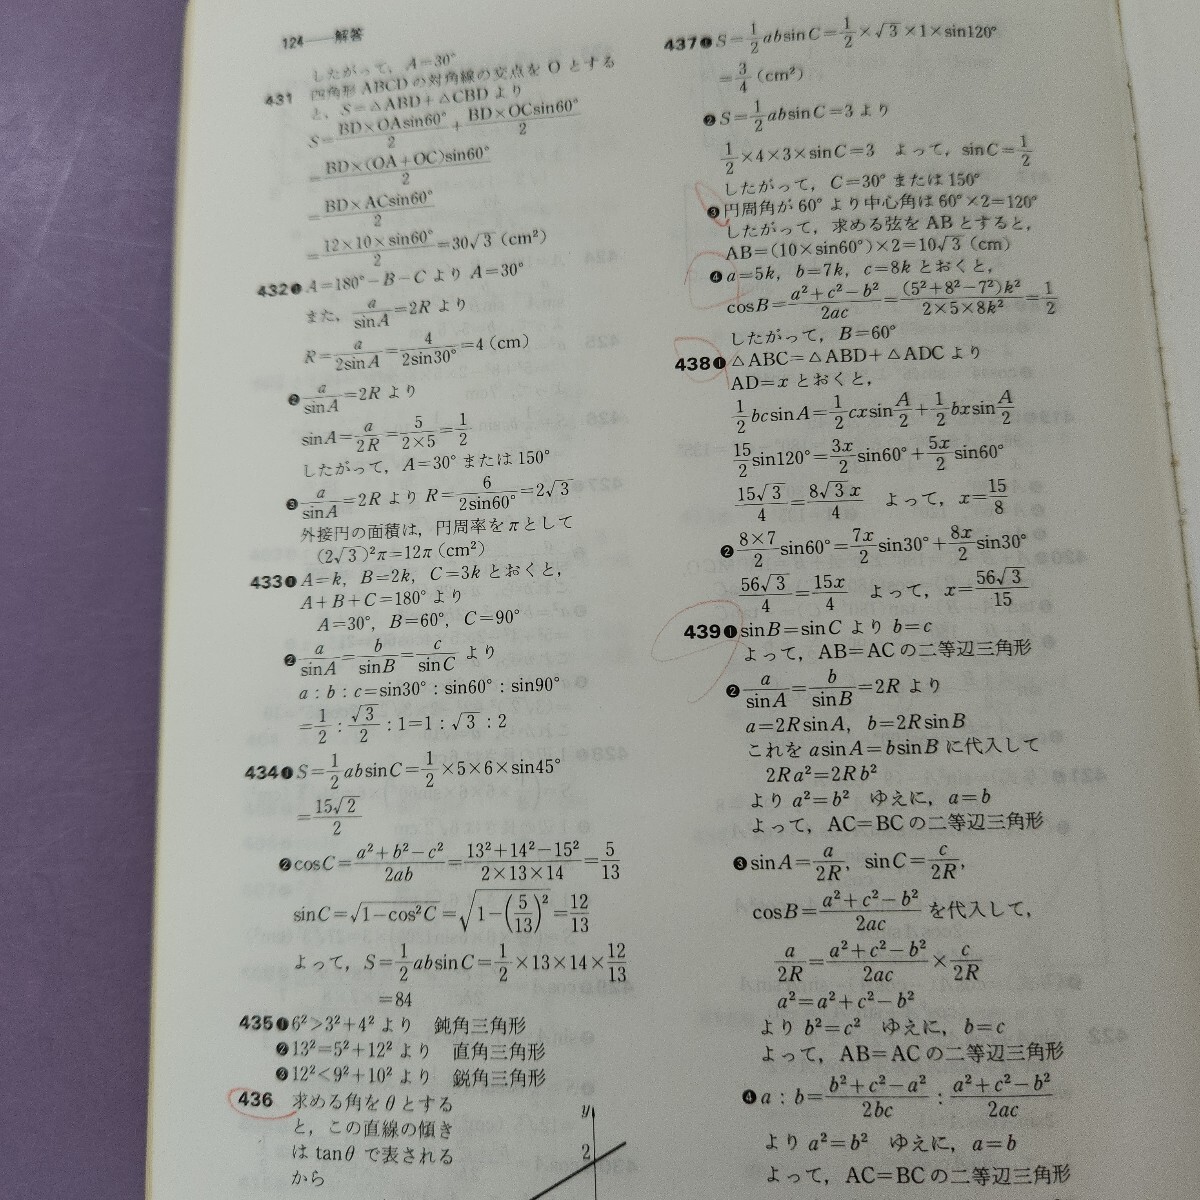 124——解答
したがって，A=30°
431 四角形 ABCD の対角線の交点を O とする
と，S=△ABD+△CBD より
S=BD×OAsin60°/2+BD×OCsin60°/2
=BD×(OA+OC)sin60°/2
=BD×ACsin60°/2
=12×10×sin60°/2=30√3 (cm²)
432❶ A=180°−B−C より A=30°
また，a/sinA=2R より
R=a/2sinA=4/2sin30°=4 (cm)
❷ a/sinA=2R より
sinA=a/2R=5/2×5=1/2
したがって，A=30° または 150°
❸ a/sinA=2R より R=6/2sin60°=2√3
外接円の面積は，円周率を π として
(2√3)²π=12π (cm²)
433❶ A=k，B=2k，C=3k とおくと，
A+B+C=180° より
A=30°，B=60°，C=90°
❷ a/sinA=b/sinB=c/sinC より
a：b：c=sin30°：sin60°：sin90°
=1/2：√3/2：1=1：√3：2
434❶ S=1/2absinC=1/2×5×6×sin45°
=15√2/2
❷ cosC=a²+b²−c²/2ab=13²+14²−15²/2×13×14=5/13
sinC=√1−cos²C=√1−(5/13)²=12/13
よって，S=1/2absinC=1/2×13×14×12/13
=84
435❶ 6²>3²+4² より 鈍角三角形
❷ 13²=5²+12² より 直角三角形
❸ 12²<9²+10² より 鋭角三角形
436 求める角を θ とする
と，この直線の傾き
は tanθ で表される
から
y
2
437❶ S=1/2absinC=1/2×√3×1×sin120°
=3/4 (cm²)
❷ S=1/2absinC=3 より
1/2×4×3×sinC=3 よって，sinC=1/2
したがって，C=30° または 150°
❸ 円周角が 60° より中心角は 60°×2=120°
したがって，求める弦を AB とすると，
AB=(10×sin60°)×2=10√3 (cm)
❹ a=5k，b=7k，c=8k とおくと，
cosB=a²+c²−b²/2ac=(5²+8²−7²)k²/2×5×8k²=1/2
したがって，B=60°
438❶ △ABC=△ABD+△ADC より
AD=x とおくと，
1/2bcsinA=1/2cxsinA/2+1/2bxsinA/2
15/2sin120°=3x/2sin60°+5x/2sin60°
15√3/4=8√3x/4 よって，x=15/8
❷ 8×7/2sin60°=7x/2sin30°+8x/2sin30°
56√3/4=15x/4 よって，x=56√3/15
439❶ sinB=sinC より b=c
よって，AB=AC の二等辺三角形
❷ a/sinA=b/sinB=2R より
a=2RsinA，b=2RsinB
これを asinA=bsinB に代入して
2Ra²=2Rb²
より a²=b² ゆえに，a=b
よって，AC=BC の二等辺三角形
❸ sinA=a/2R，sinC=c/2R，
cosB=a²+c²−b²/2ac を代入して，
a/2R=a²+c²−b²/2ac×c/2R
a²=a²+c²−b²
より b²=c² ゆえに，b=c
よって，AB=AC の二等辺三角形
❹ a：b=b²+c²−a²/2bc：a²+c²−b²/2ac
より a²=b² ゆえに，a=b
よって，AC=BC の二等辺三角形